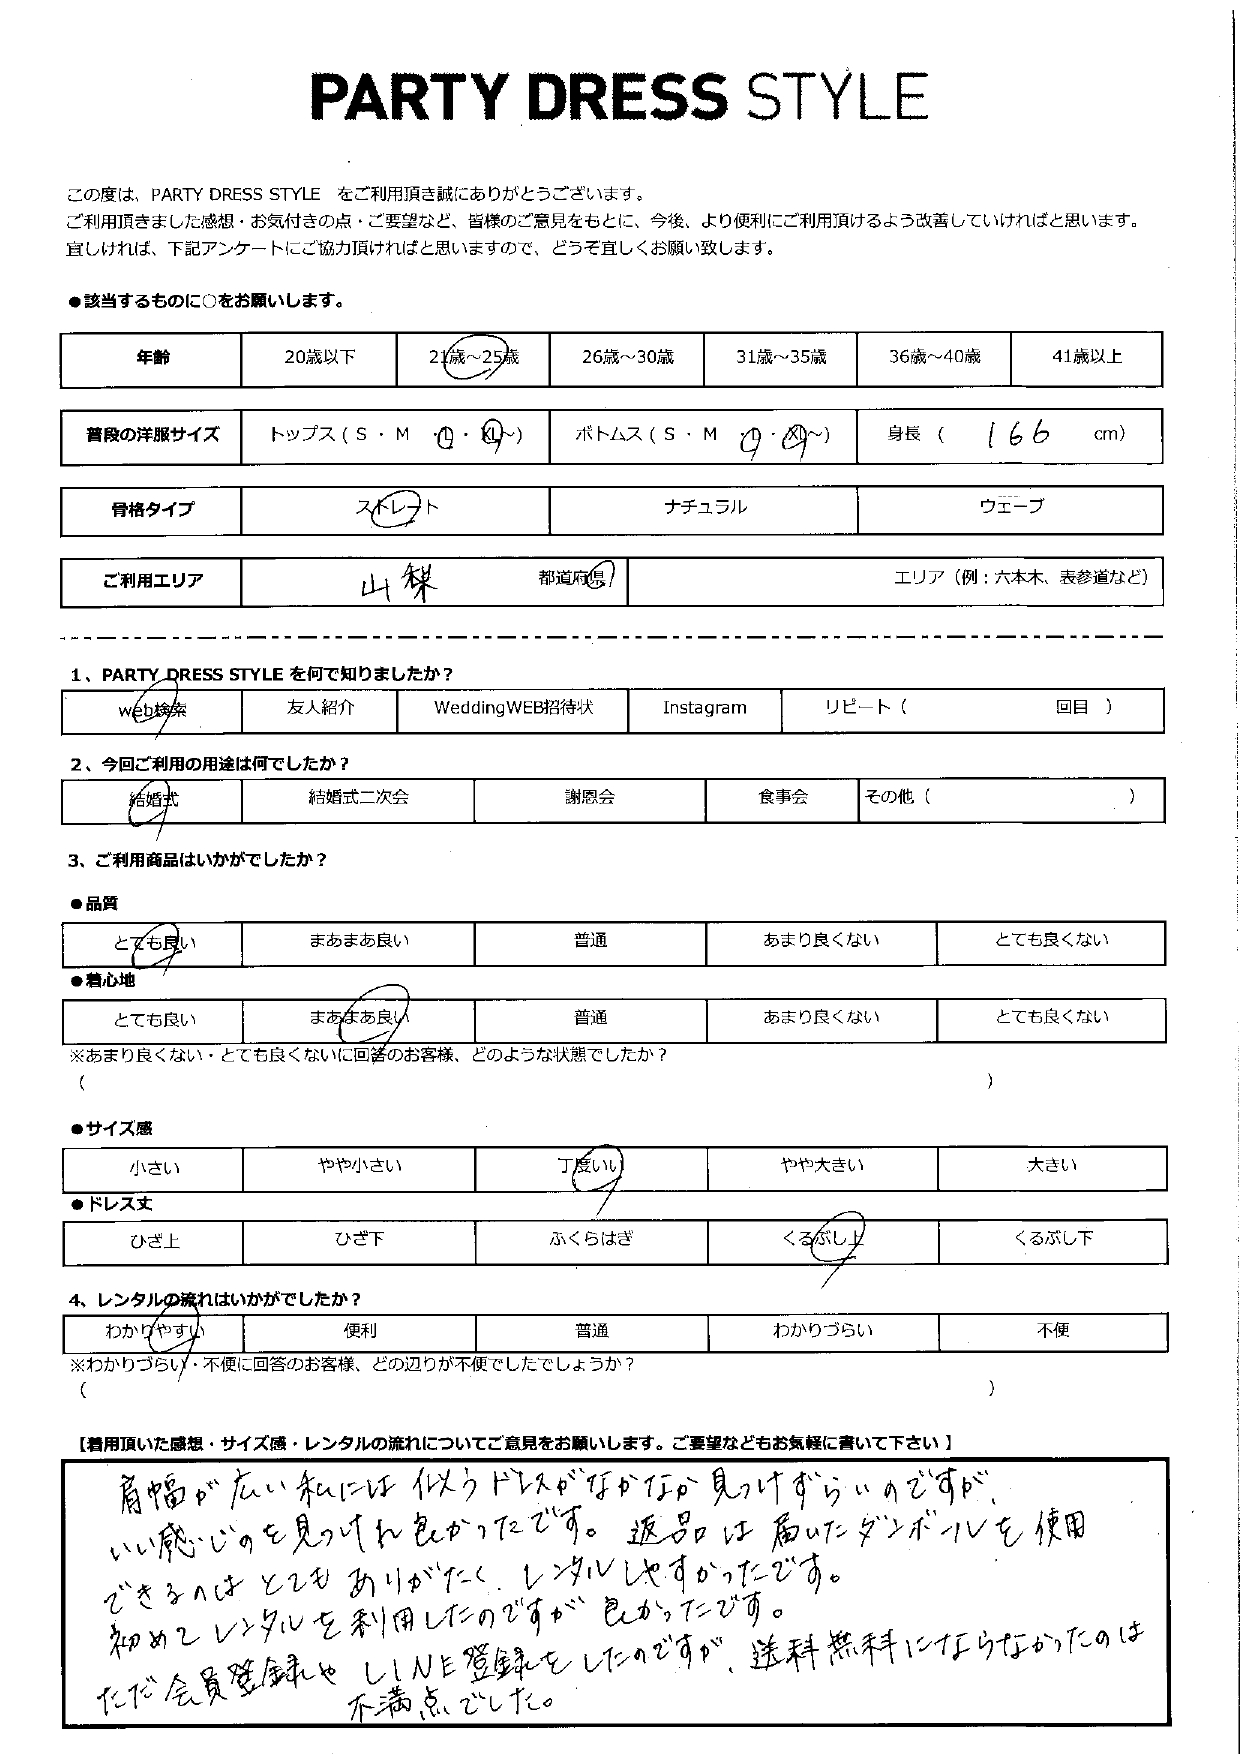 PARTY DRESS STYLE
この度は、PARTY DRESS STYLE をご利用頂き誠にありがとうございます。
ご利用頂きました感想・お気付きの点・ご要望など、皆様のご意見をもとに、今後、より便利にご利用頂けるよう改善していければと思います。
宜しければ、下記アンケートにご協力頂ければと思いますので、どうぞ宜しくお願い致します。
●該当するものに○をお願いします。
年齢 20歳以下 21歳～25歳 26歳～30歳 31歳～35歳 36歳～40歳 41歳以上
普段の洋服サイズ トップス ( S ・ M ・L ・ XL～) ボトムス ( S ・ M ・L ・ XL～) 身長 ( 166 cm)
骨格タイプ ストレート ナチュラル ウェーブ
ご利用エリア 山梨 都道府県 エリア（例：六本木、表参道など）
1、PARTY DRESS STYLE を何で知りましたか？
web検索 友人紹介 WeddingWEB招待状 Instagram リピート（ 回目 ）
2、今回ご利用の用途は何でしたか？
結婚式 結婚式二次会 謝恩会 食事会 その他（ ）
3、ご利用商品はいかがでしたか？
●品質
とても良い まあまあ良い 普通 あまり良くない とても良くない
●着心地
とても良い まあまあ良い 普通 あまり良くない とても良くない
※あまり良くない・とても良くないに回答のお客様、どのような状態でしたか？
（ ）
●サイズ感
小さい やや小さい 丁度いい やや大きい 大きい
●ドレス丈
ひざ上 ひざ下 ふくらはぎ くるぶし上 くるぶし下
4、レンタルの流れはいかがでしたか？
わかりやすい 便利 普通 わかりづらい 不便
※わかりづらい・不便に回答のお客様、どの辺りが不便でしたでしょうか？
（ ）
【着用頂いた感想・サイズ感・レンタルの流れについてご意見をお願いします。ご要望などもお気軽に書いて下さい】
肩幅が広い私には似合うドレスがなかなか見つけずらいのですが、
いい感じのを見つけれ良かったです。返品は届いたダンボールを使用
できるのはとてもありがたく、レンタルしやすかったです。
初めてレンタルを利用したのですが良かったです。
ただ会員登録やLINE登録をしたのですが、送料無料にならなかったのは
不満点でした。